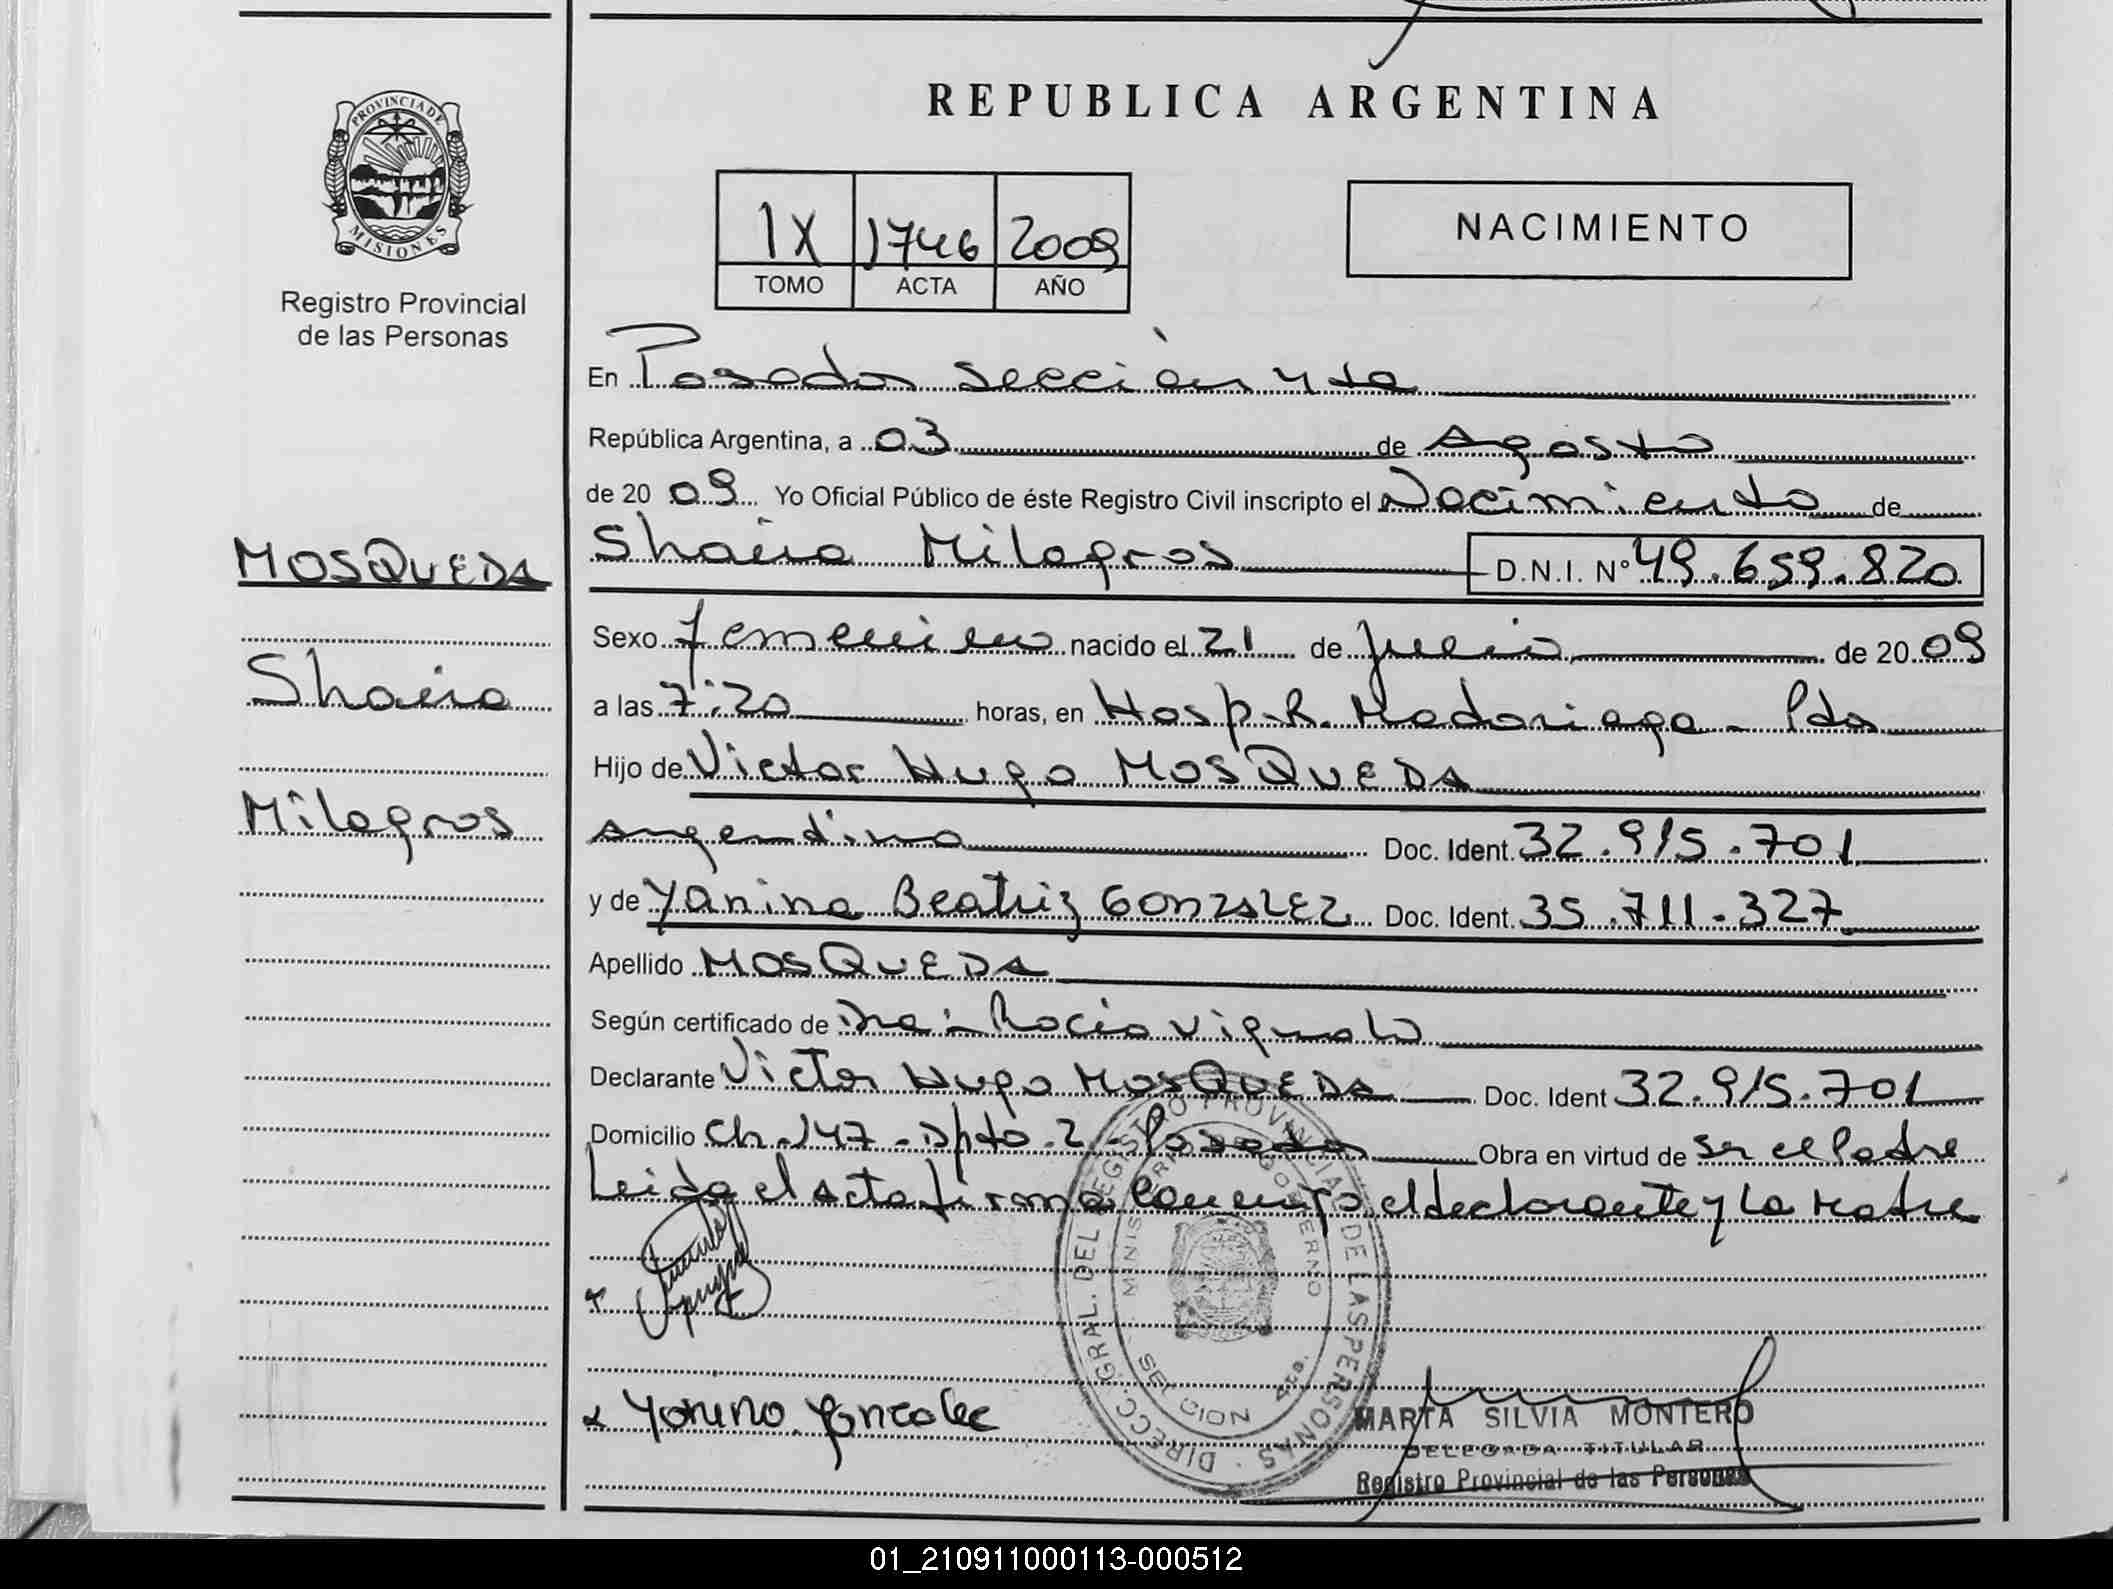 REPUBLICA ARGENTINA
PROVINCIA DE
MISIONES
Registro Provincial
de las Personas
IX 1746 2009
TOMO ACTA AÑO
NACIMIENTO
En Posadas sección 4ta
República Argentina, a 03 de Agosto
de 20 09 Yo Oficial Público de éste Registro Civil inscripto el Nacimiento de
MOSQUEDA
Shaira Milagros D.N.I. Nº 49.659.820
Sexo femenino nacido el 21 de Julio de 20 09
Shaira
a las 7:20 horas, en Hosp. R. Madariaga - Pdas
Hijo de Victor Hugo MOSQUEDA
Milagros
argentino Doc. Ident. 32.915.701
y de Yanina Beatriz GONZALEZ Doc. Ident. 35.711.327
Apellido MOSQUEDA
Según certificado de Dra: Rocio Vignolo
Declarante Victor Hugo MOSQUEDA Doc. Ident 32.915.701
Domicilio Ch. 147 - Dpto. 2 - Posadas Obra en virtud de ser el Padre
Leida el acta firma conmigo el declarante y la Madre
DIRECC. GRAL. DEL REGISTRO PROVINCIAL DE LAS PERSONAS
MINISTERIO DE GOBIERNO
SECCION 4ta.
Yanina Gonzalez
MARTA SILVIA MONTERO
DELEGADA TITULAR
Registro Provincial de las Personas
01_210911000113-000512